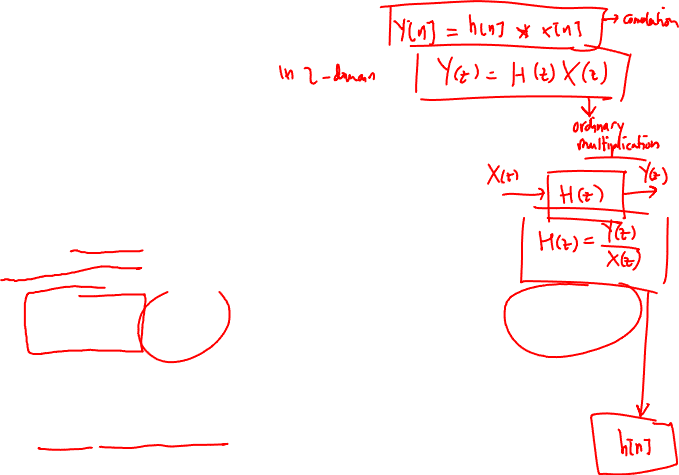 Y[n] = h[n] * x[n]
In Z-domain
Y(z) = H(z) X(z)
ordinary
multiplication
X(z)
H(z)
Y(z)
H(z) = Y(z) / X(z)
h[n]